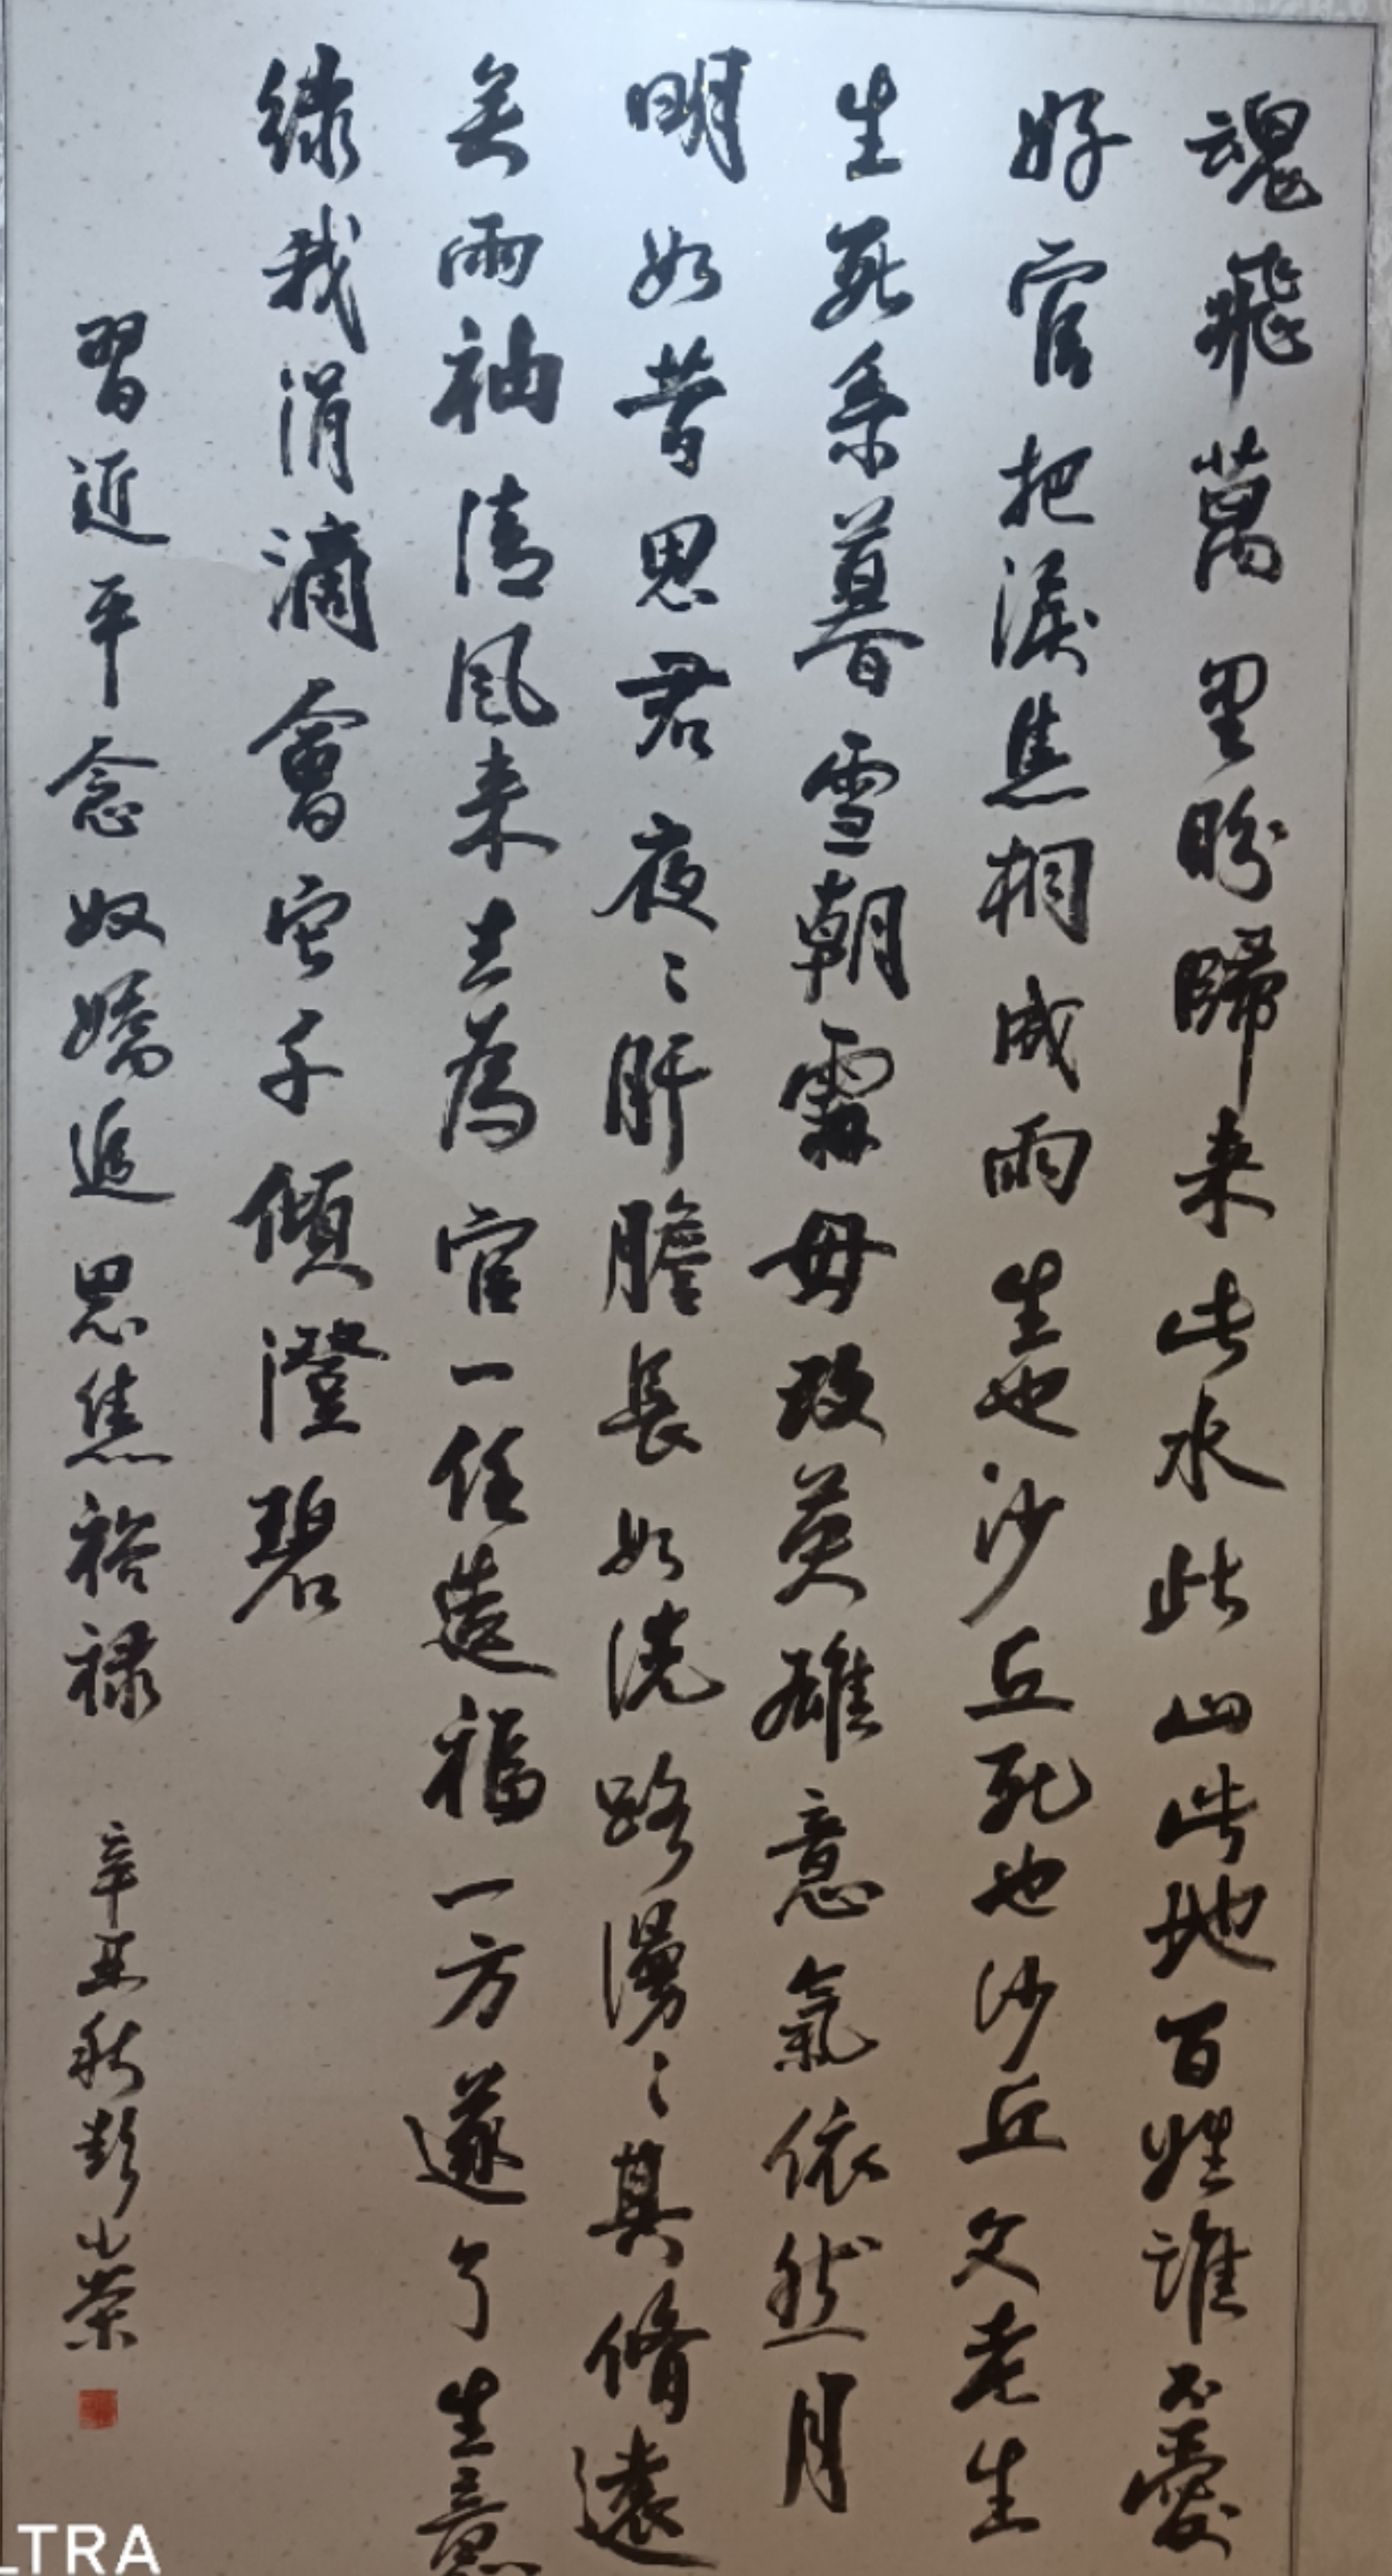 魂飛萬里盼歸来此水此山此地百姓誰不愛
好官把淚焦桐成雨生也沙丘死也沙丘父老生
生死系暮雪朝霜毋改英雄意氣依然月
明如昔思君夜〻肝膽長如洗路漫〻其脩遠
矣兩袖清風来去為官一任造福一方遂了生意
綠我涓滴會它千傾澄碧
習近平念奴嬌追思焦裕禄 辛丑秋彭小榮
LTRA